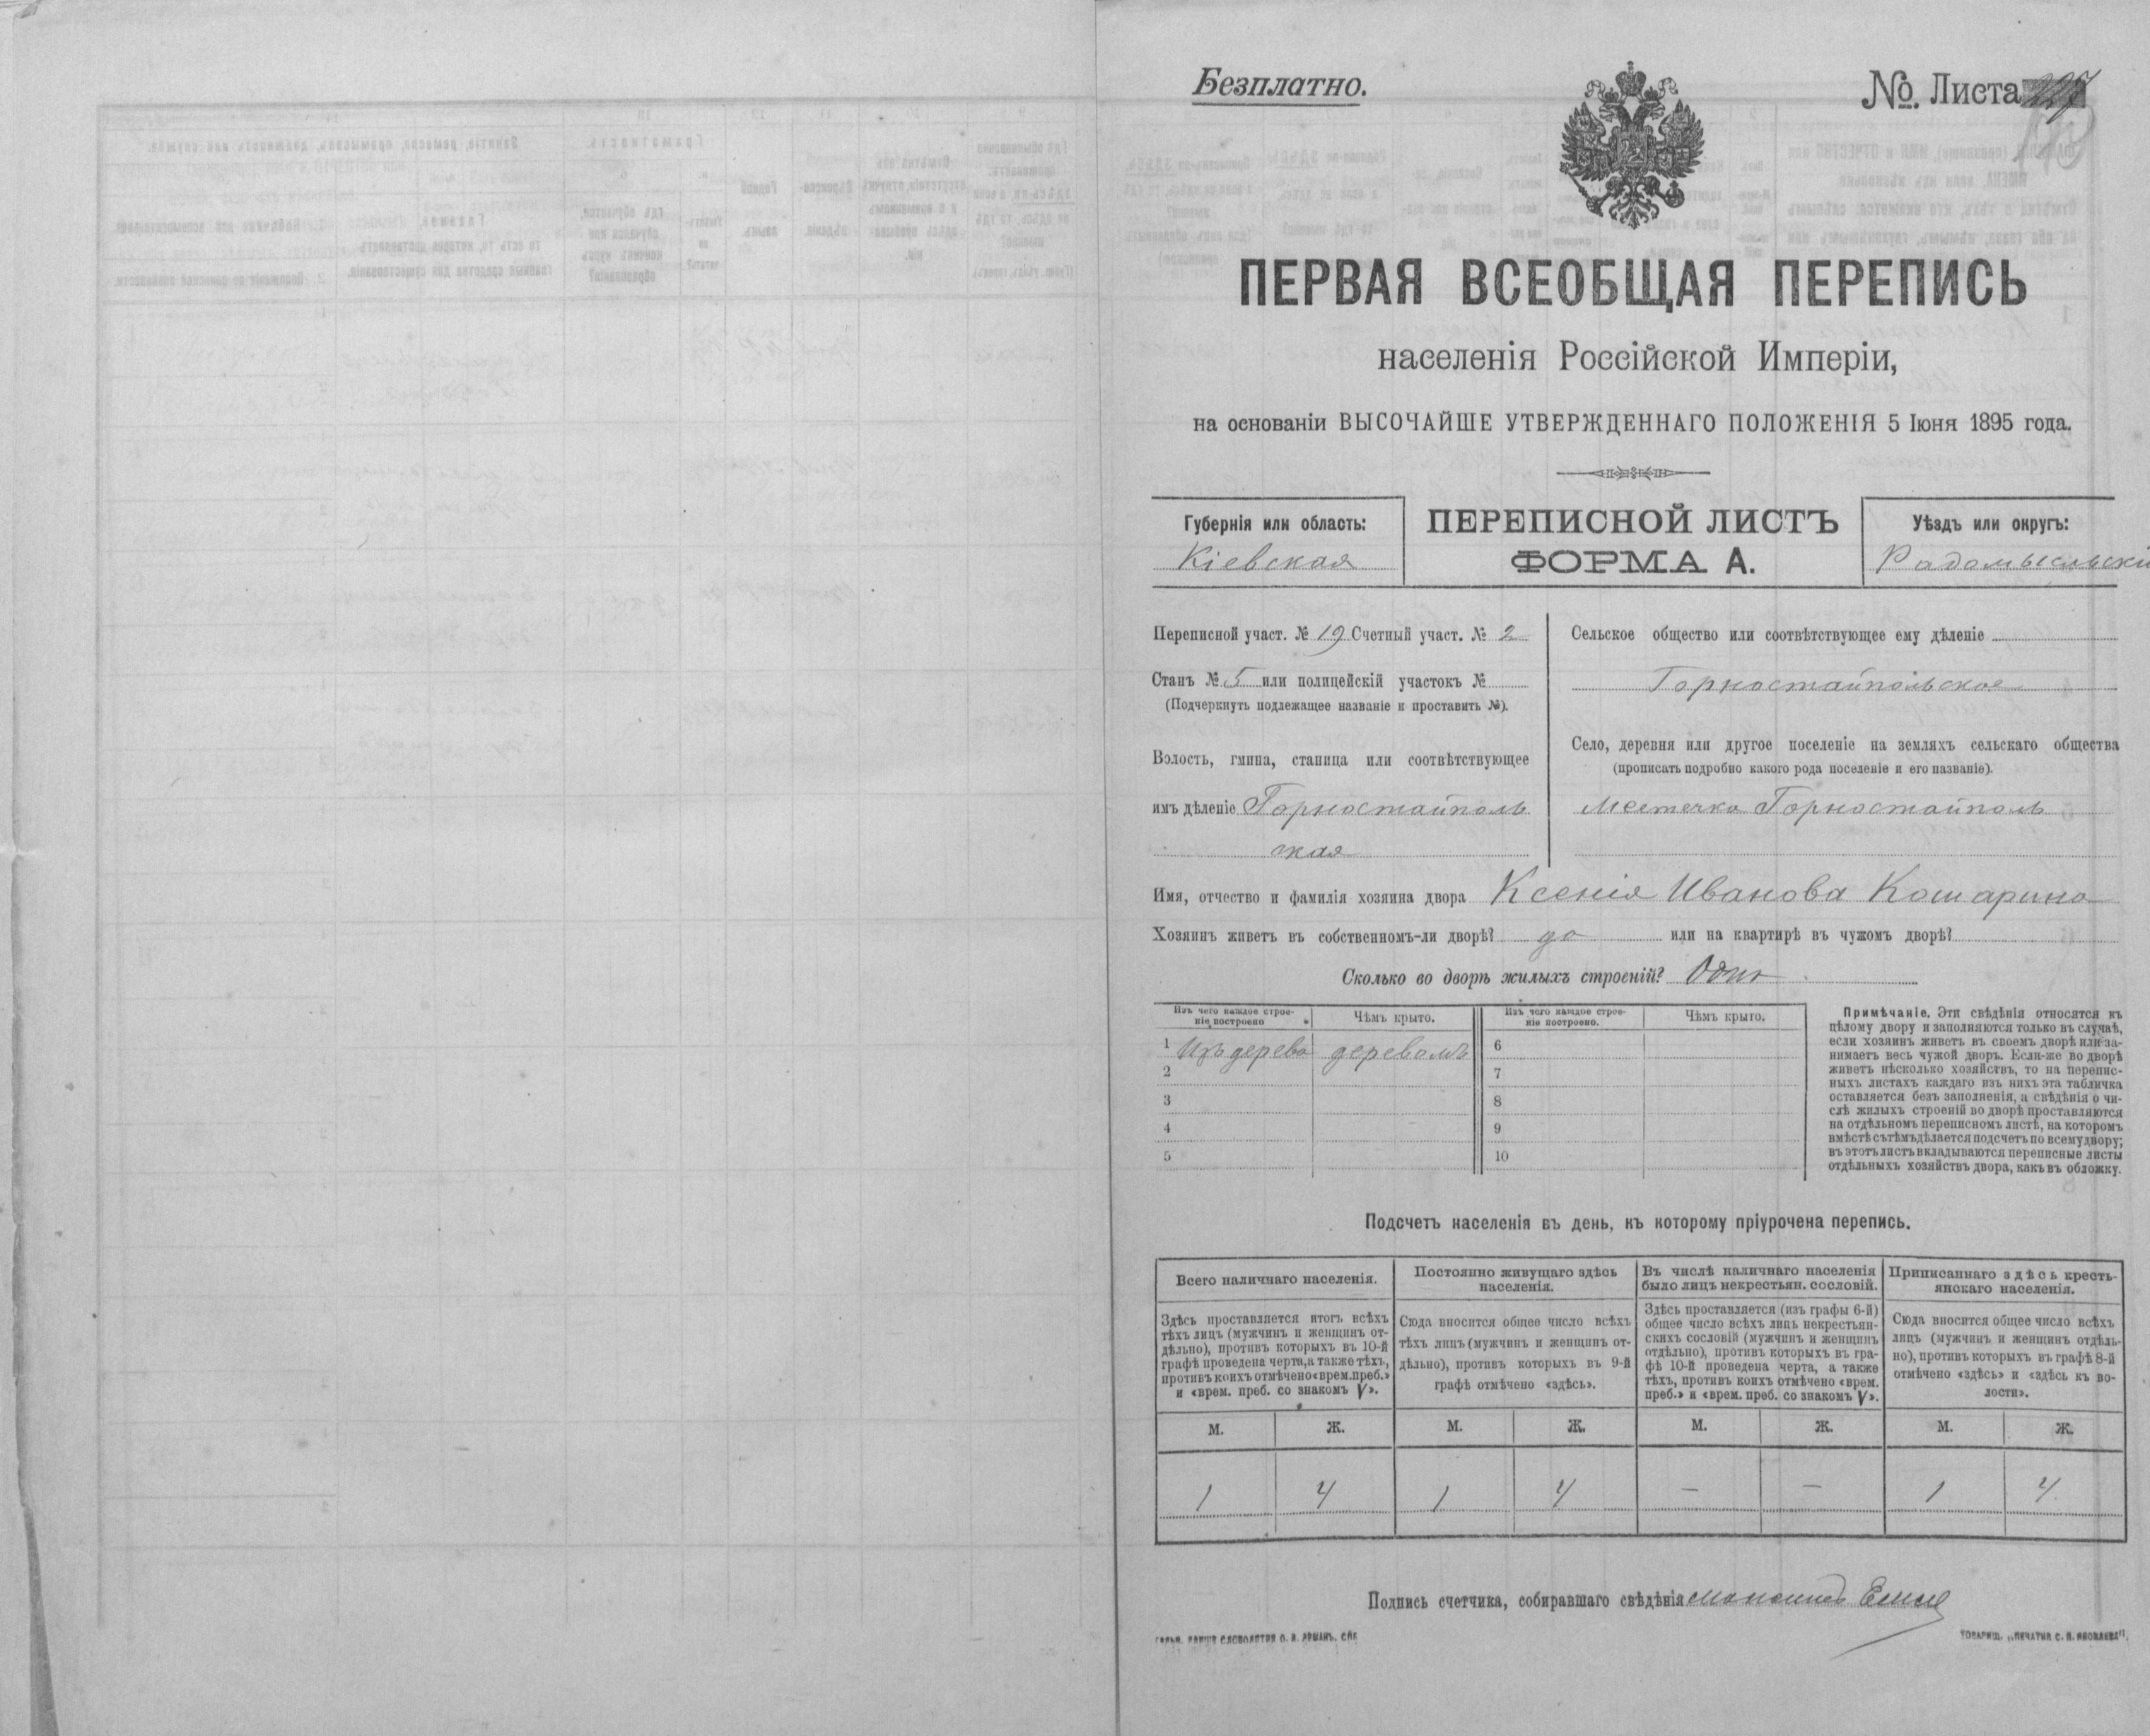 Безплатно.
№. Листа 227
ПЕРВАЯ ВСЕОБЩАЯ ПЕРЕПИСЬ
населенія Россійской Имперіи,
на основаніи ВЫСОЧАЙШЕ УТВЕРЖДЕННАГО ПОЛОЖЕНІЯ 5 Іюня 1895 года.
Губернія или область:
Кіевская
ПЕРЕПИСНОЙ ЛИСТЪ
ФОРМА А.
Уѣздъ или округъ:
Радомысльскі
Переписной участ. № 19 Счетный участ. № 2
Станъ № 5 или полицейскій участокъ №
(Подчеркнуть подлежащее названіе и проставить №).
Волость, гмина, станица или соотвѣтствующее
имъ дѣленіе Горностайполь
ская
Сельское общество или соотвѣтствующее ему дѣленіе
Горностайпольское
Село, деревня или другое поселеніе на земляхъ сельскаго общества
(прописать подробно какого рода поселеніе и его названіе).
Местечко Горностайполь
Имя, отчество и фамилія хозяина двора Ксенія Иванова Кошарина
Хозяинъ живетъ въ собственномъ-ли дворѣ? да или на квартирѣ въ чужомъ дворѣ?
Сколько во дворѣ жилыхъ строеній? Одно
Изъ чего каждое строе-
ніе построено
Чѣмъ крыто.
Изъ чего каждое строе-
ніе построено.
Чѣмъ крыто.
1 Изъ дерева деревомъ
2
3
4
5
6
7
8
9
10
Примѣчаніе. Эти свѣдѣнія относятся къ
цѣлому двору и заполняются только въ случаѣ,
если хозяинъ живетъ въ своемъ дворѣ или за-
нимаетъ весь чужой дворъ. Если-же во дворѣ
живетъ нѣсколько хозяйствъ, то на перепис-
ныхъ листахъ каждаго изъ нихъ эта табличка
оставляется безъ заполненія, а свѣдѣнія о чи-
слѣ жилыхъ строеній во дворѣ проставляются
на отдѣльномъ переписномъ листѣ, на которомъ
вмѣстѣ съ тѣмъ дѣлается подсчетъ по всему двору;
въ этотъ листъ вкладываются переписные листы
отдѣльныхъ хозяйствъ двора, какъ въ обложку.
Подсчетъ населенія въ день, къ которому пріурочена перепись.
Всего наличнаго населенія.
Постоянно живущаго здѣсь
населенія.
Въ числѣ наличнаго населенія
было лицъ некрестьян. сословій.
Приписаннаго здѣсь кресть-
янскаго населенія.
Здѣсь проставляется итогъ всѣхъ
тѣхъ лицъ (мужчинъ и женщинъ от-
дѣльно), противъ которыхъ въ 10-й
графѣ проведена черта, а также тѣхъ,
противъ коихъ отмѣчено «врем. преб.»
и «врем. преб. со знакомъ V».
Сюда вносится общее число всѣхъ
тѣхъ лицъ (мужчинъ и женщинъ от-
дѣльно), противъ которыхъ въ 9-й
графѣ отмѣчено «здѣсь».
Здѣсь проставляется (изъ графы 6-й)
общее число всѣхъ лицъ некрестьян-
скихъ сословій (мужчинъ и женщинъ
отдѣльно), противъ которыхъ въ гра-
фѣ 10-й проведена черта, а также
тѣхъ, противъ коихъ отмѣчено «врем.
преб.» и «врем. преб. со знакомъ V».
Сюда вносится общее число всѣхъ
лицъ (мужчинъ и женщинъ отдѣль-
но), противъ которыхъ въ графѣ 8-й
отмѣчено «здѣсь» и «здѣсь къ во-
лости».
М. Ж. М. Ж. М. Ж. М. Ж.
1 4 1 4 — — 1 4
Подпись счетчика, собиравшаго свѣдѣнія
ТОВАРИЩ. „ПЕЧАТНЯ С. П. ЯКОВЛЕВА".